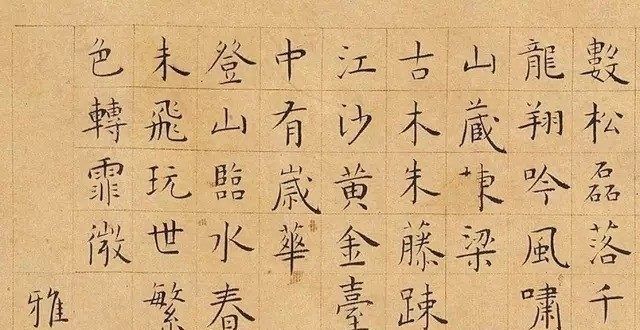 數松磊落千
龍翔吟風嘯
山藏棟梁
古木朱藤踈
江沙黃金臺
中有歲華
登山臨水春
未飛玩世繁
色轉霏微
雅